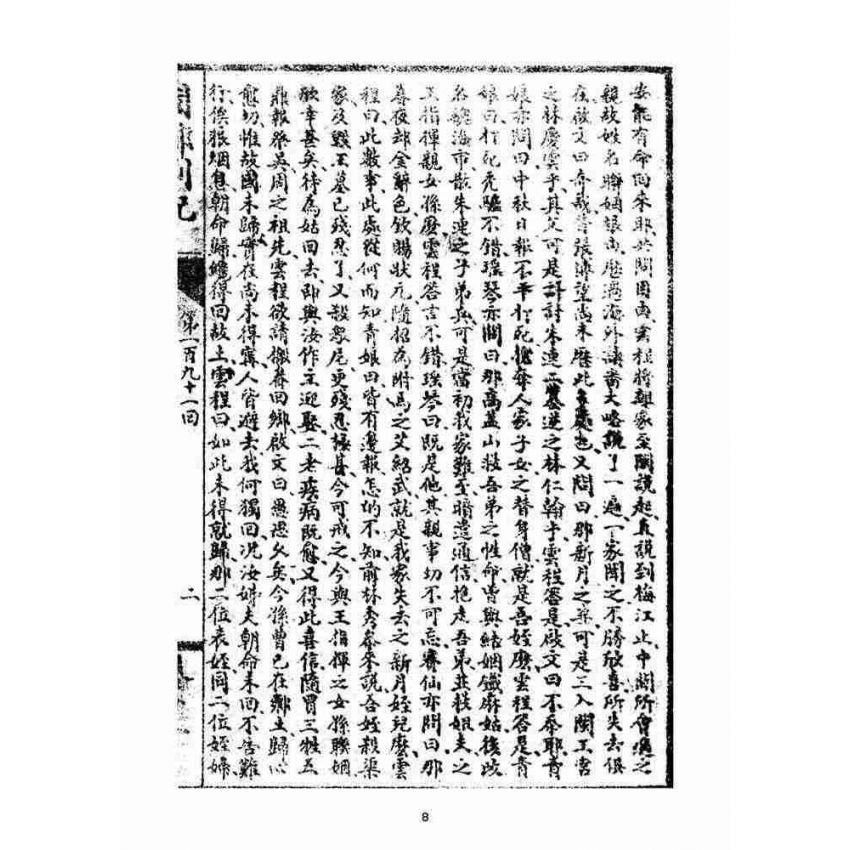 安能有命回朱耶共問因由雲程將離家至閩說起直說到梅江止中間所會過之
親故姓名聯姻報仇歷過海外諸番大略說了一遍一家聞之不勝歡喜所失去俱
在啟文曰奇哉昔張溥望尚未歷此多處也又問曰那新月之兼可是三入閩王宮
之林慶雲乎其父可是計討朱連正叢逆之林仁翰乎雲程答是啟文曰不忝耶青
娘亦問曰中秋日報不平打死攙奪人家子女之替身僧就是吾姪麼雲程答是青
娘曰打死禿驢不錯瑤琴亦問曰那高蓋山救吾弟之性命曾與結姻鐵麻姑後改
名魏海市散朱連之子弟兵可是當初我家難至暗遣通信抱走吾弟並救姐夫之
王指揮親女孫麼雲程答言不錯瑤琴曰既是他其親事切不可忘賽仙亦問曰那
暮夜却金辭色欽賜狀元隨招為附馬之艾紹武就是我家失去之新月姪兒麼雲
程曰此數事此處從何而知青娘曰皆有邊報怎的不知前林秀泰來說吾姪殺渠
家及毀王墓已殘忍了又殺眾尼更殘忍極甚今可戒之今與王指揮之女孫聯姻
歡幸甚矣待為姑回去即與汝作主迎娶二老疾病既愈又得此喜信隨買三牲五
鼎報祭吳周之祖先雲程欲請搬眷回鄉啟文曰愚思久矣今孫曹已在鄴土歸心
愈切惟故國未歸實在尚未得寧人皆避去我何獨回况汝姊夫朝命未回不告難
行俟狼烟息朝命歸纔得回故土雲程曰如此未得就歸那二位表姪同二位姪婦
第一百九十一回
二
8